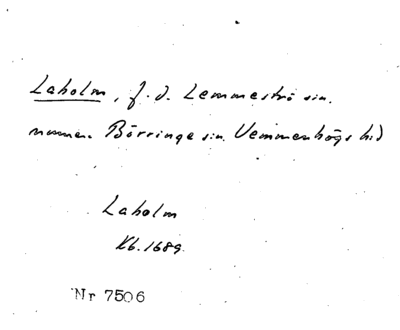 Laholm, f.d. Lemmeströ sn.
numera Börringe sn. Vemmenhögs hd
Laholm
Kb. 1689
Nr 7506